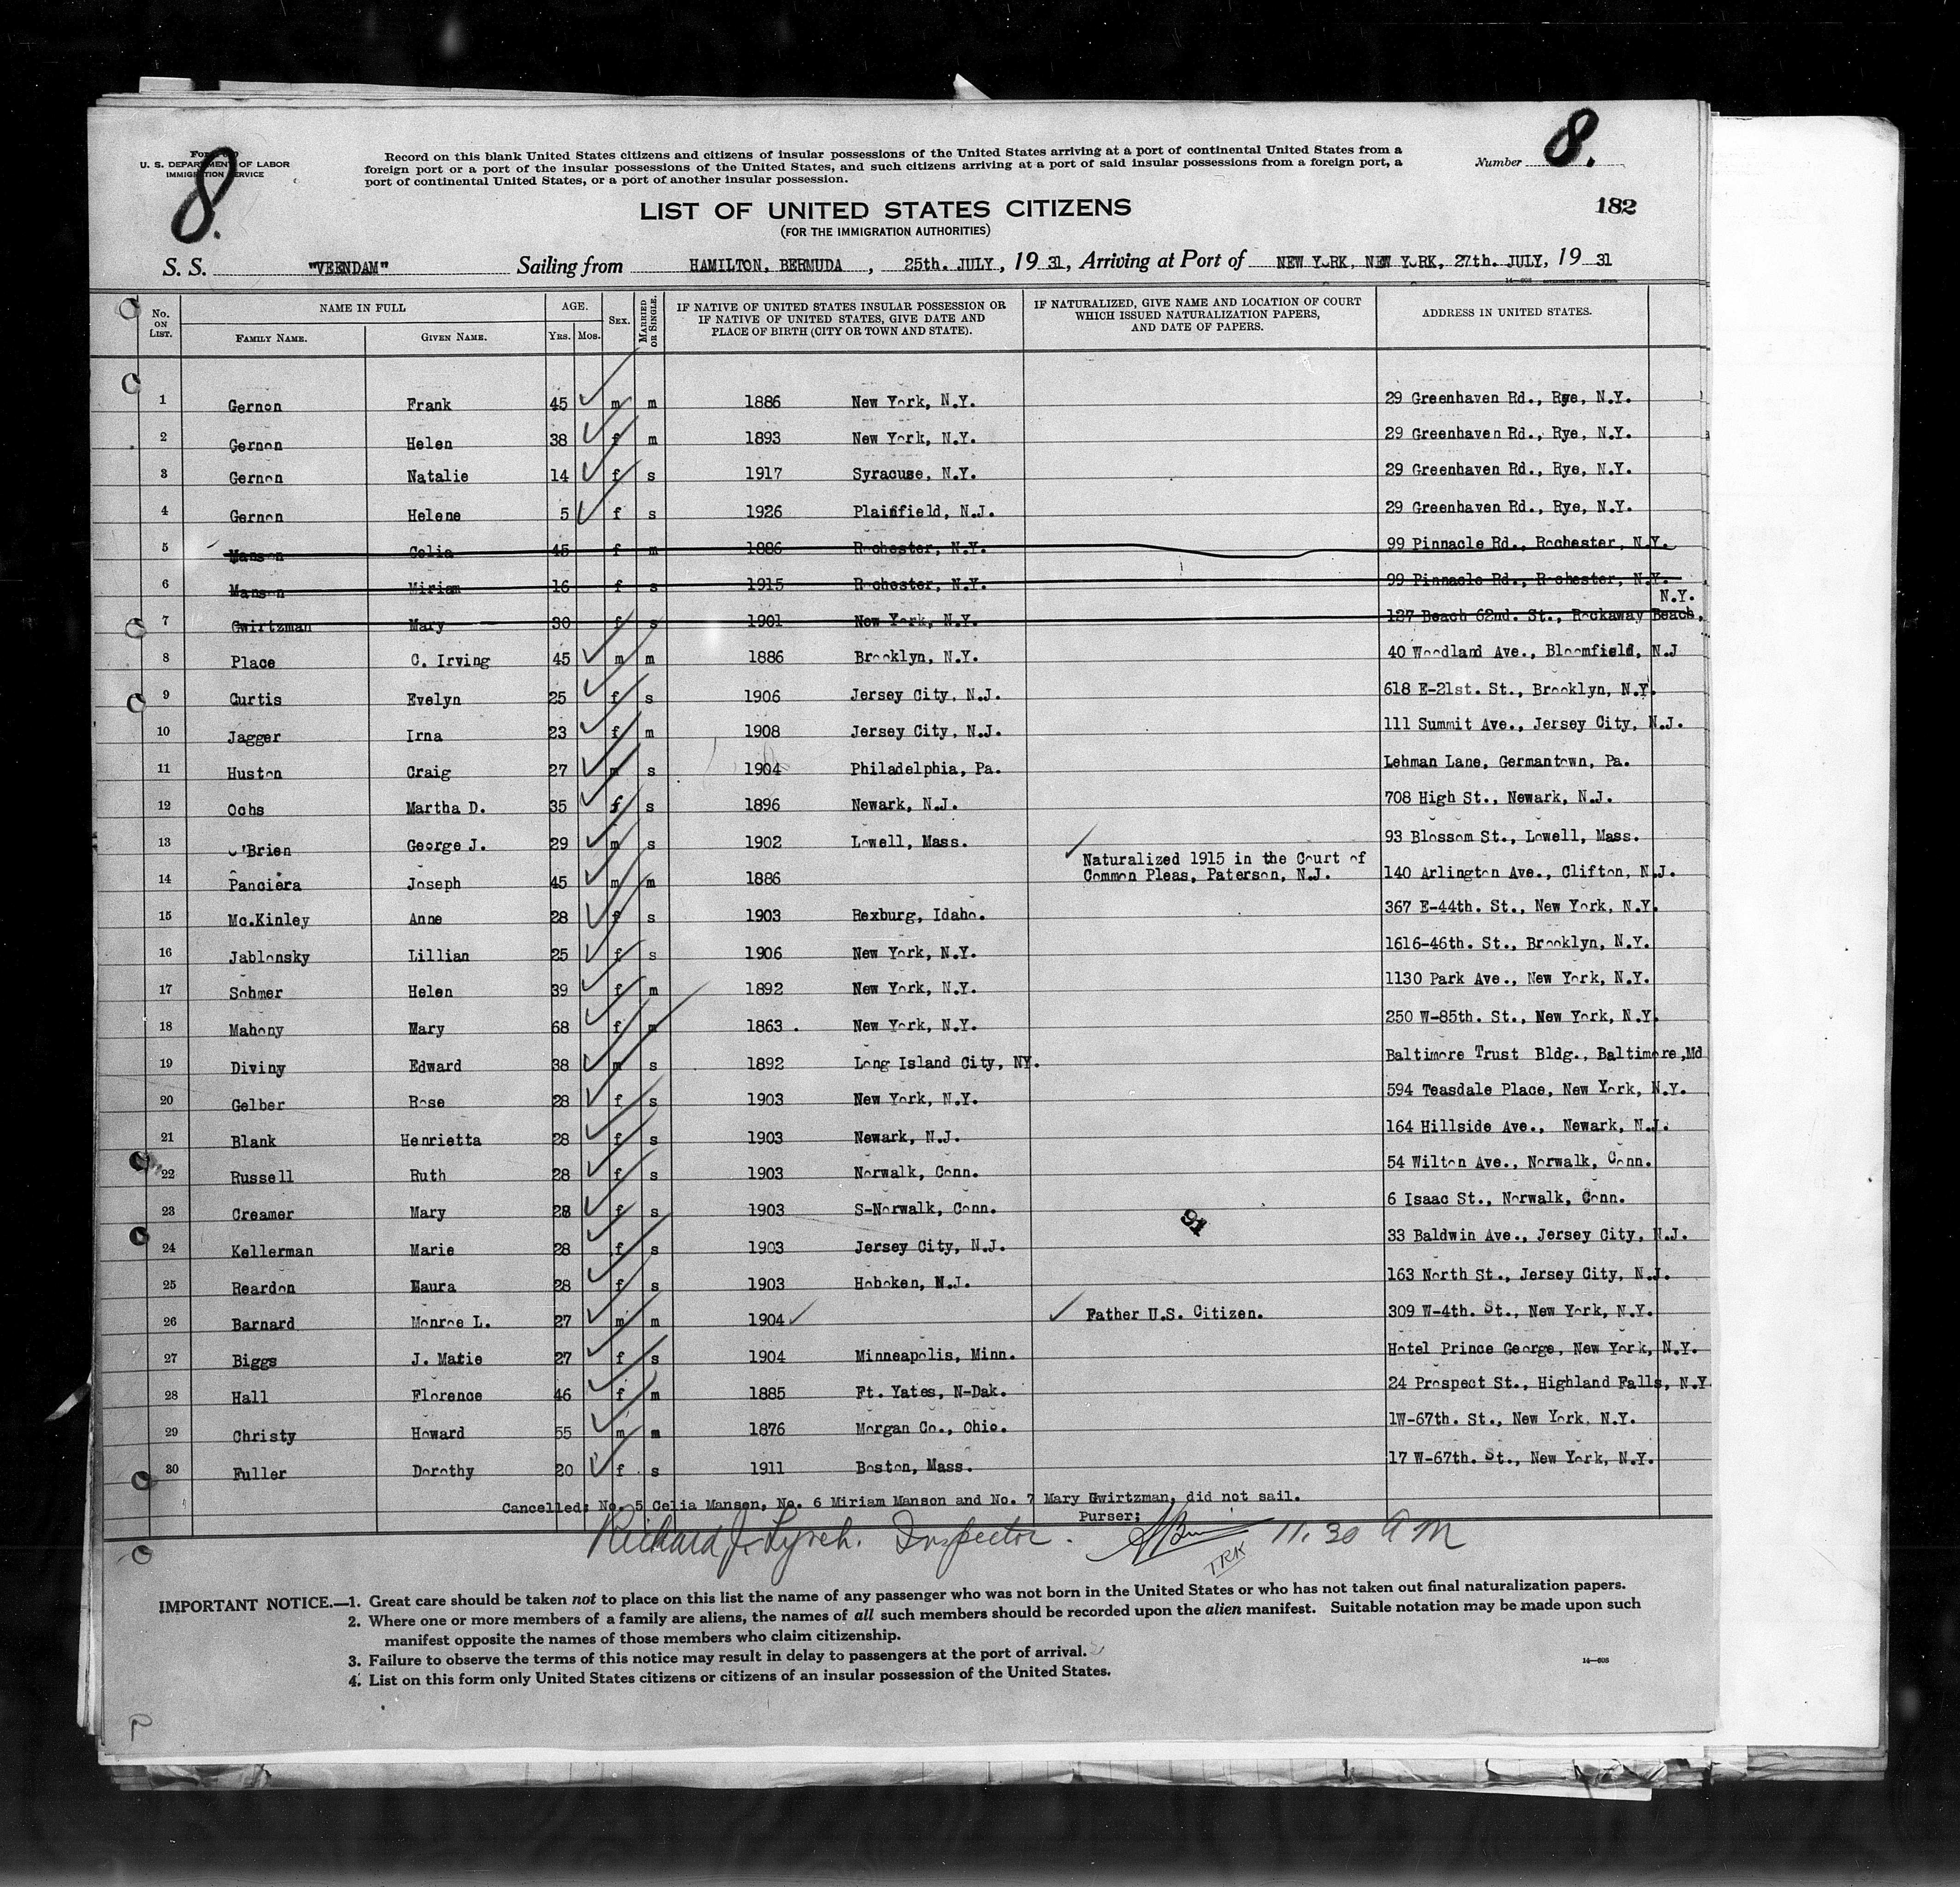 Form
U. S. DEPARTMENT OF LABOR
IMMIGRATION SERVICE
8.
Record on this blank United States citizens and citizens of insular possessions of the United States arriving at a port of continental United States from a
foreign port or a port of the insular possessions of the United States, and such citizens arriving at a port of said insular possessions from a foreign port, a
port of continental United States, or a port of another insular possession.
Number 8.
LIST OF UNITED STATES CITIZENS
182
(FOR THE IMMIGRATION AUTHORITIES)
S. S. "VEENDAM" Sailing from HAMILTON, BERMUDA , 25th. JULY, 19 31, Arriving at Port of NEW YORK, NEW YORK, 27th. JULY, 19 31
14—608 GOVERNMENT PRINTING OFFICE
No. ON LIST. NAME IN FULL FAMILY NAME. GIVEN NAME. AGE. YRS. MOS. SEX. MARRIED OR SINGLE. IF NATIVE OF UNITED STATES INSULAR POSSESSION OR IF NATIVE OF UNITED STATES, GIVE DATE AND PLACE OF BIRTH (CITY OR TOWN AND STATE). IF NATURALIZED, GIVE NAME AND LOCATION OF COURT WHICH ISSUED NATURALIZATION PAPERS, AND DATE OF PAPERS. ADDRESS IN UNITED STATES.
1 Gernon Frank 45 m m 1886 New York, N.Y. 29 Greenhaven Rd., Rye, N.Y.
2 Gernon Helen 38 f m 1893 New York, N.Y. 29 Greenhaven Rd., Rye, N.Y.
3 Gernon Natalie 14 f s 1917 Syracuse, N.Y. 29 Greenhaven Rd., Rye, N.Y.
4 Gernon Helene 5 f s 1926 Plainfield, N.J. 29 Greenhaven Rd., Rye, N.Y.
5 Manson Celia 45 f m 1886 Rochester, N.Y. 99 Pinnacle Rd., Rochester, N.Y.
6 Manson Miriam 16 f s 1915 Rochester, N.Y. 99 Pinnacle Rd., Rochester, N.Y.
N.Y.
7 Gwirtzman Mary 30 f s 1901 New York, N.Y. 127 Beach 62nd. St., Rockaway Beach,
8 Place C. Irving 45 m m 1886 Brooklyn, N.Y. 40 Woodland Ave., Bloomfield, N.J
9 Curtis Evelyn 25 f s 1906 Jersey City, N.J. 618 E-21st. St., Brooklyn, N.Y.
10 Jagger Irna 23 f m 1908 Jersey City, N.J. 111 Summit Ave., Jersey City, N.J.
11 Huston Craig 27 m s 1904 Philadelphia, Pa. Lehman Lane, Germantown, Pa.
12 Ochs Martha D. 35 f s 1896 Newark, N.J. 708 High St., Newark, N.J.
13 O'Brien George J. 29 m s 1902 Lowell, Mass. 93 Blossom St., Lowell, Mass.
Naturalized 1915 in the Court of
14 Panciera Joseph 45 m m 1886 Common Pleas, Paterson, N.J. 140 Arlington Ave., Clifton, N.J.
15 Mc.Kinley Anne 28 f s 1903 Rexburg, Idaho. 367 E-44th. St., New York, N.Y.
16 Jablonsky Lillian 25 f s 1906 New York, N.Y. 1616-46th. St., Brooklyn, N.Y.
17 Sohmer Helen 39 f m 1892 New York, N.Y. 1130 Park Ave., New York, N.Y.
18 Mahony Mary 68 f m 1863 . New York, N.Y. 250 W-85th. St., New York, N.Y.
19 Diviny Edward 38 m s 1892 Long Island City, NY. Baltimore Trust Bldg., Baltimore,Md
20 Gelber Rose 28 f s 1903 New York, N.Y. 594 Teasdale Place, New York, N.Y.
21 Blank Henrietta 28 f s 1903 Newark, N.J. 164 Hillside Ave., Newark, N.J.
22 Russell Ruth 28 f s 1903 Norwalk, Conn. 54 Wilton Ave., Norwalk, Conn.
23 Creamer Mary 28 f s 1903 S-Norwalk, Conn. 6 Isaac St., Norwalk, Conn.
91
24 Kellerman Marie 28 f s 1903 Jersey City, N.J. 33 Baldwin Ave., Jersey City, N.J.
25 Reardon Laura 28 f s 1903 Hoboken, N.J. 163 North St., Jersey City, N.J.
26 Barnard Monroe L. 27 m m 1904 Father U.S. Citizen. 309 W-4th. St., New York, N.Y.
27 Biggs J. Matie 27 f s 1904 Minneapolis, Minn. Hotel Prince George, New York, N.Y.
28 Hall Florence 46 f m 1885 Ft. Yates, N-Dak. 24 Prospect St., Highland Falls, N.Y
29 Christy Howard 55 m m 1876 Morgan Co., Ohio. 1W-67th. St., New York, N.Y.
30 Fuller Dorothy 20 f s 1911 Boston, Mass. 17 W-67th. St., New York, N.Y.
Cancelled: No. 5 Celia Manson, No. 6 Miriam Manson and No. 7 Mary Gwirtzman, did not sail.
Purser;
Richard J. Lynch. Inspector. 11.30 AM
TRK
IMPORTANT NOTICE.—1. Great care should be taken not to place on this list the name of any passenger who was not born in the United States or who has not taken out final naturalization papers.
2. Where one or more members of a family are aliens, the names of all such members should be recorded upon the alien manifest. Suitable notation may be made upon such
manifest opposite the names of those members who claim citizenship.
3. Failure to observe the terms of this notice may result in delay to passengers at the port of arrival.
4. List on this form only United States citizens or citizens of an insular possession of the United States.
14—608
P